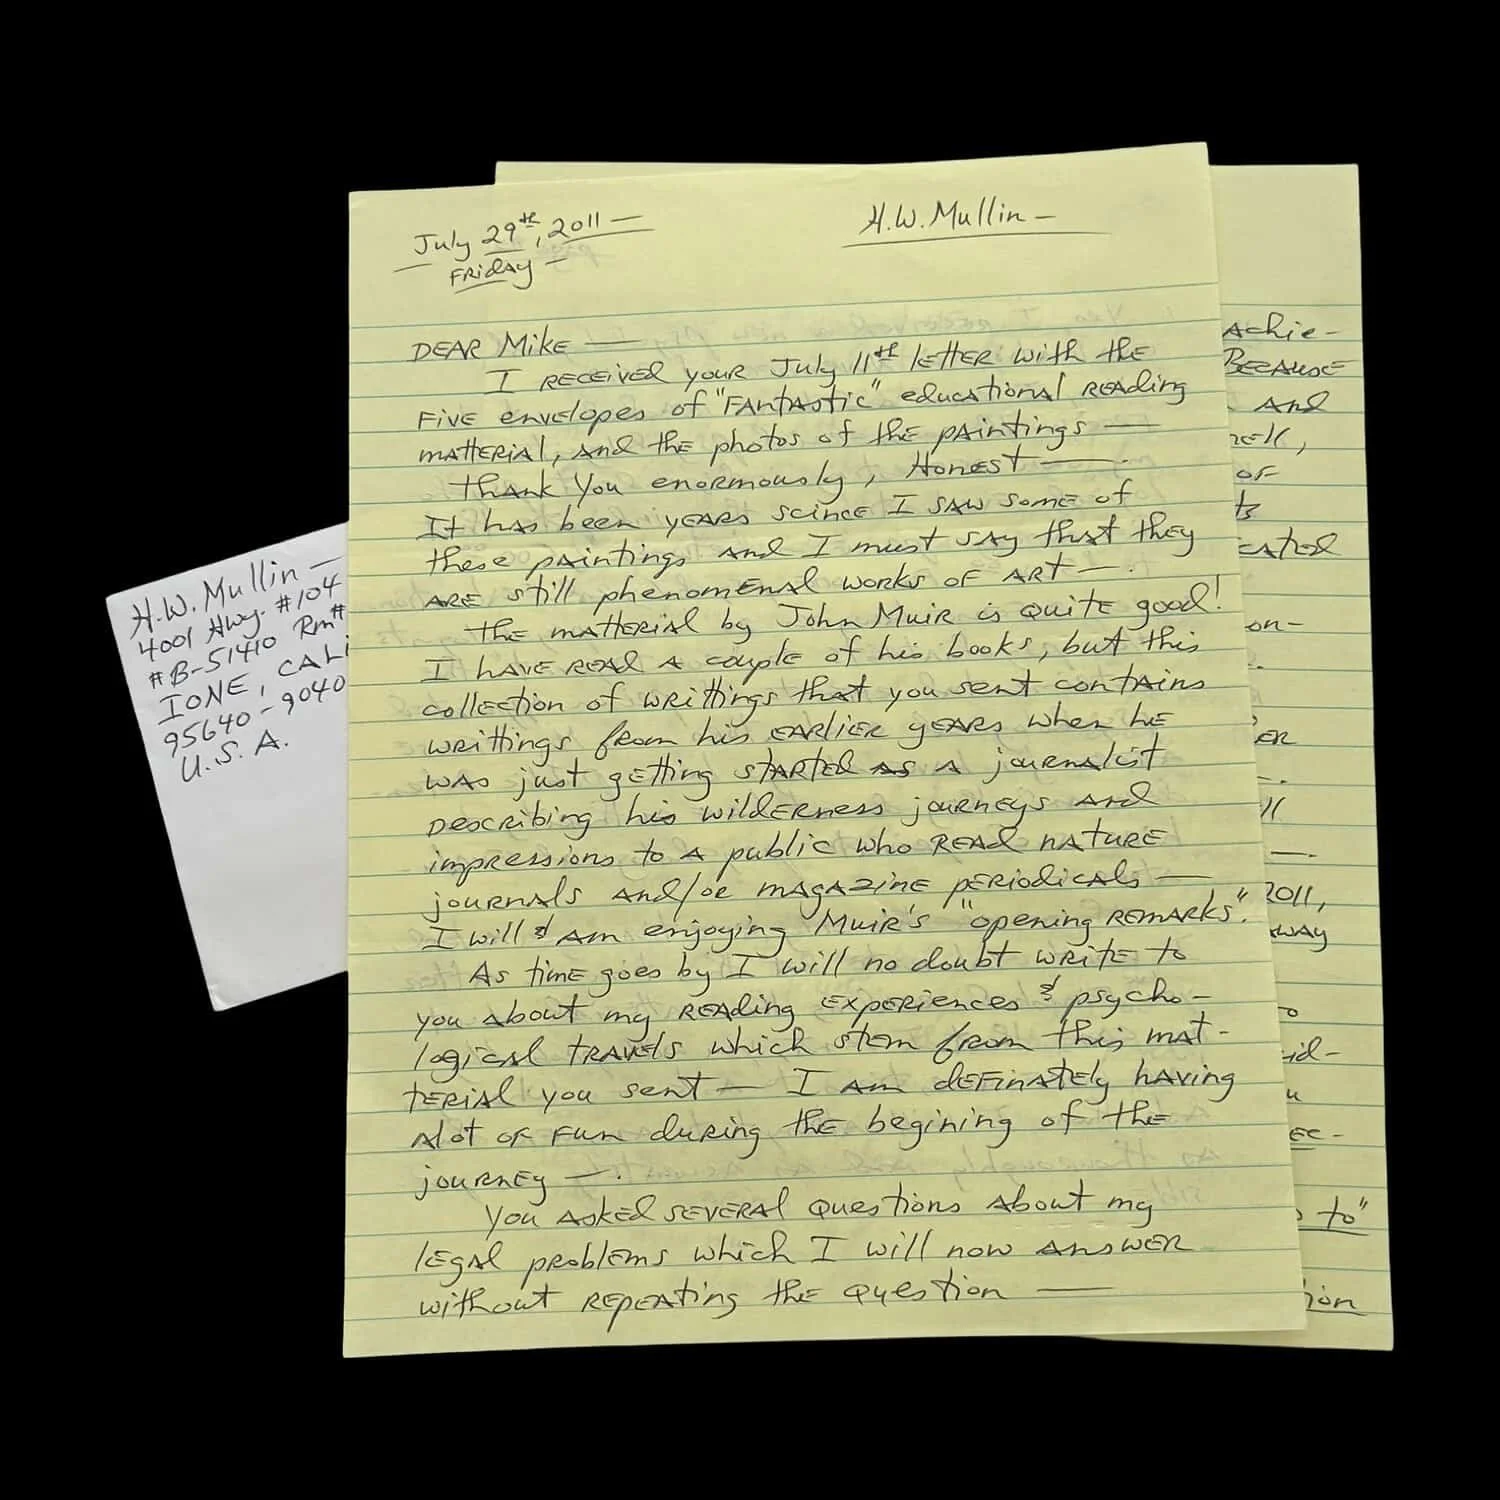 July 29th, 2011 —
— Friday —
H.W. Mullin —
Dear Mike —
I received your July 11th letter with the
five envelopes of "Fantastic" educational reading
matterial, and the photos of the paintings —
Thank You enormously, Honest —.
It has been years scince I saw some of
these paintings and I must say that they
are still phenomenal works of art —.
The matterial by John Muir is quite good!
I have read a couple of his books, but this
collection of writtings that you sent contains
writtings from his earlier years when he
was just getting started as a journalist
describing his wilderness journeys and
impressions to a public who read nature
journals and/or magazine periodicals —
I will & am enjoying Muir's "opening remarks".
As time goes by I will no doubt write to
you about my reading experiences & psycho-
logical travels which stem from this mat-
terial you sent — I am definately having
alot of fun during the begining of the
journey —.
You asked several questions about my
legal problems which I will now answer
without repeating the question —
H.W. Mullin —
4001 Hwy. #104
#B-51410 Rm#
IONE, CALI
95640-9040
U.S.A.
Achie-
Because
And
nell,
of
ts
cated
on-
er
ll
2011,
away
to
id-
u
ec-
to"
ion